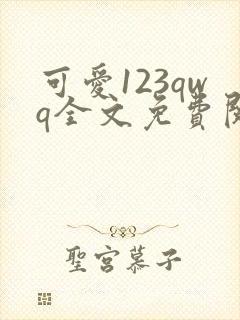 可愛123qw
q全文免費閱
聖宮慕子